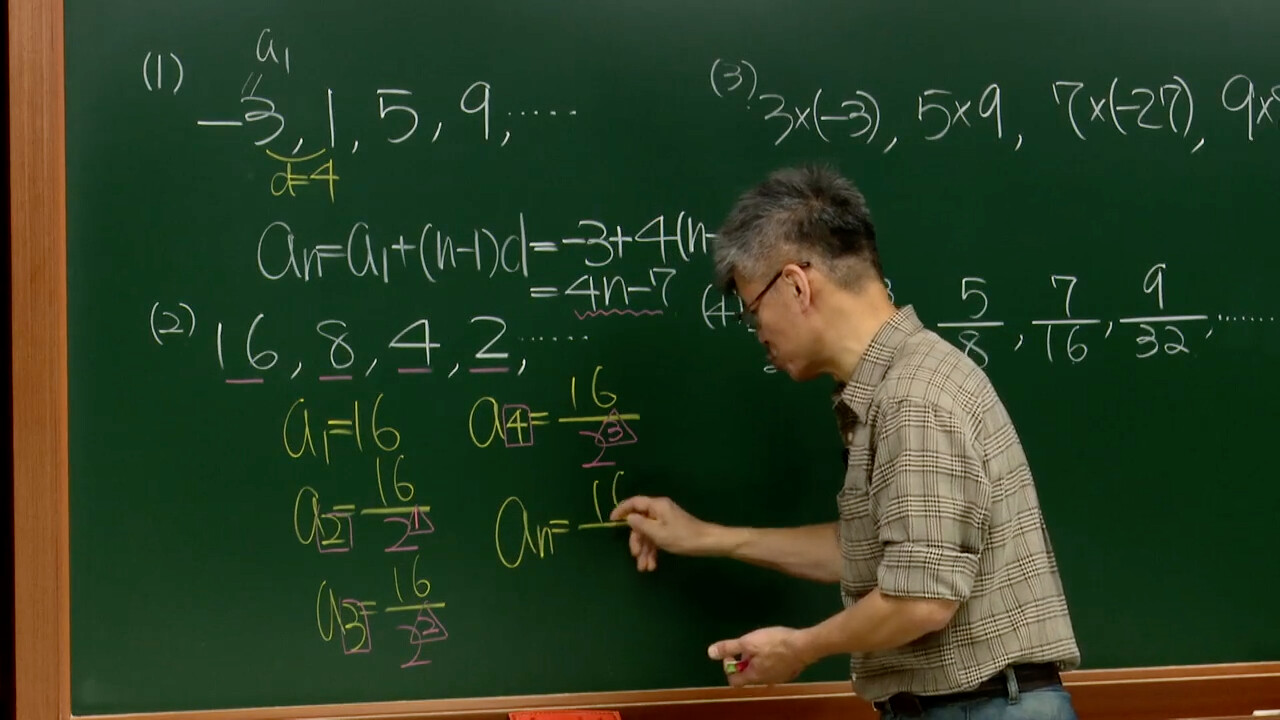 (1) a₁
-3, 1, 5, 9, ……
d=4
aₙ=a₁+(n-1)d=-3+4(n-
=4n-7
(2) 16, 8, 4, 2, ……
a₁=16
a₂=16/2¹
a₃=16/2²
a₄=16/2³
aₙ=16/
(3) 3×(-3), 5×9, 7×(-27), 9×
(4) 5/8, 7/16, 9/32, ……